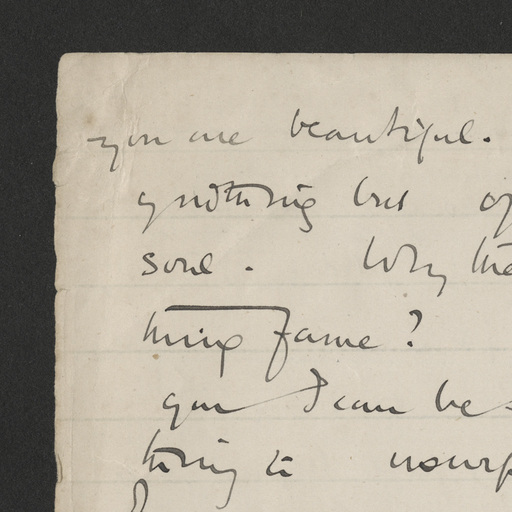 you are beautiful.
of nothing but of
soul. Why the
thing fame?
you I can be
thing to usurp